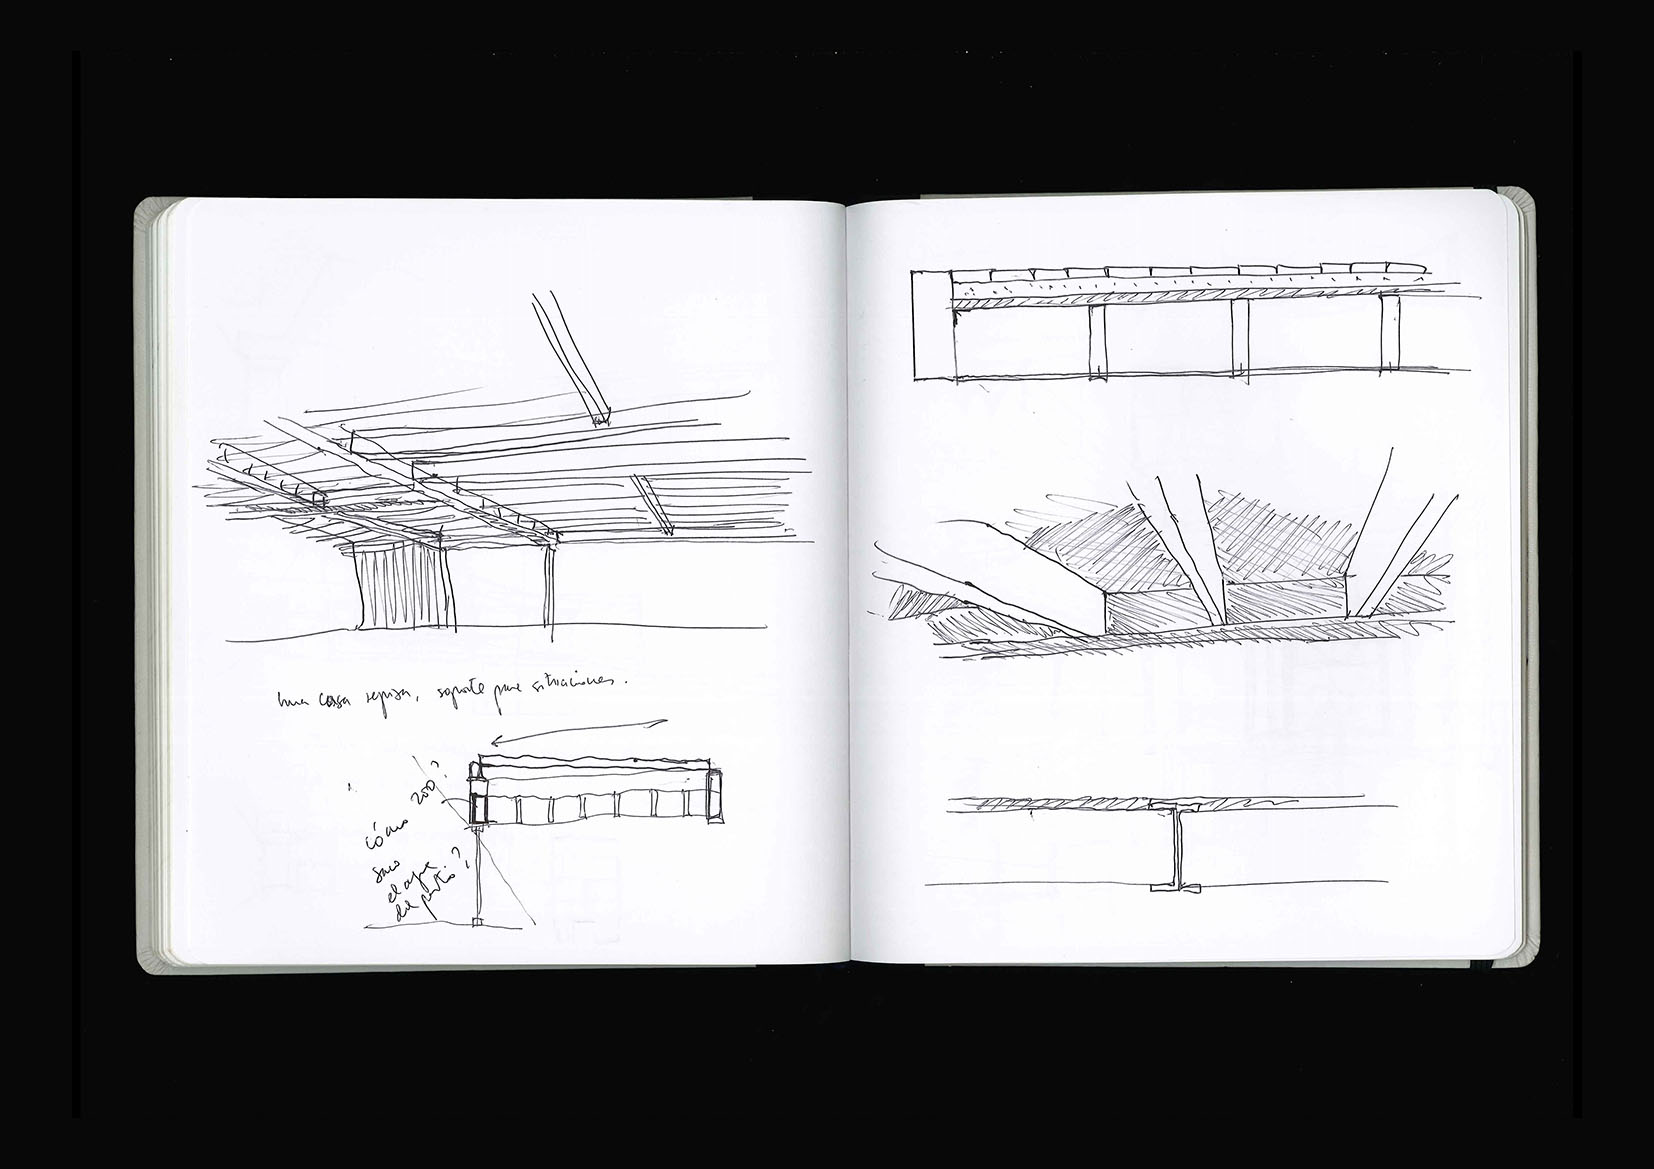 una casa repisa, soporte para situaciones.
200?
cómo
saco
el agua
del patio?